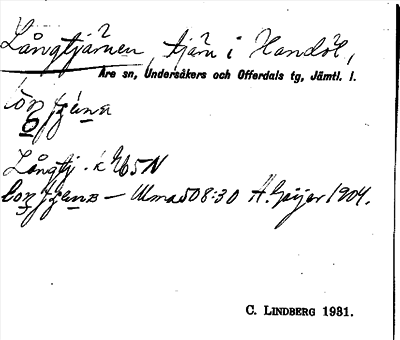 Långtjärnen, tjärn i Handöl,
Åre sn, Undersåkers och Offerdals tg, Jämtl. l.
Långtj. k Ub5N
— Ulma 508:30 H. Geijer 1904.
C. LINDBERG 1931.